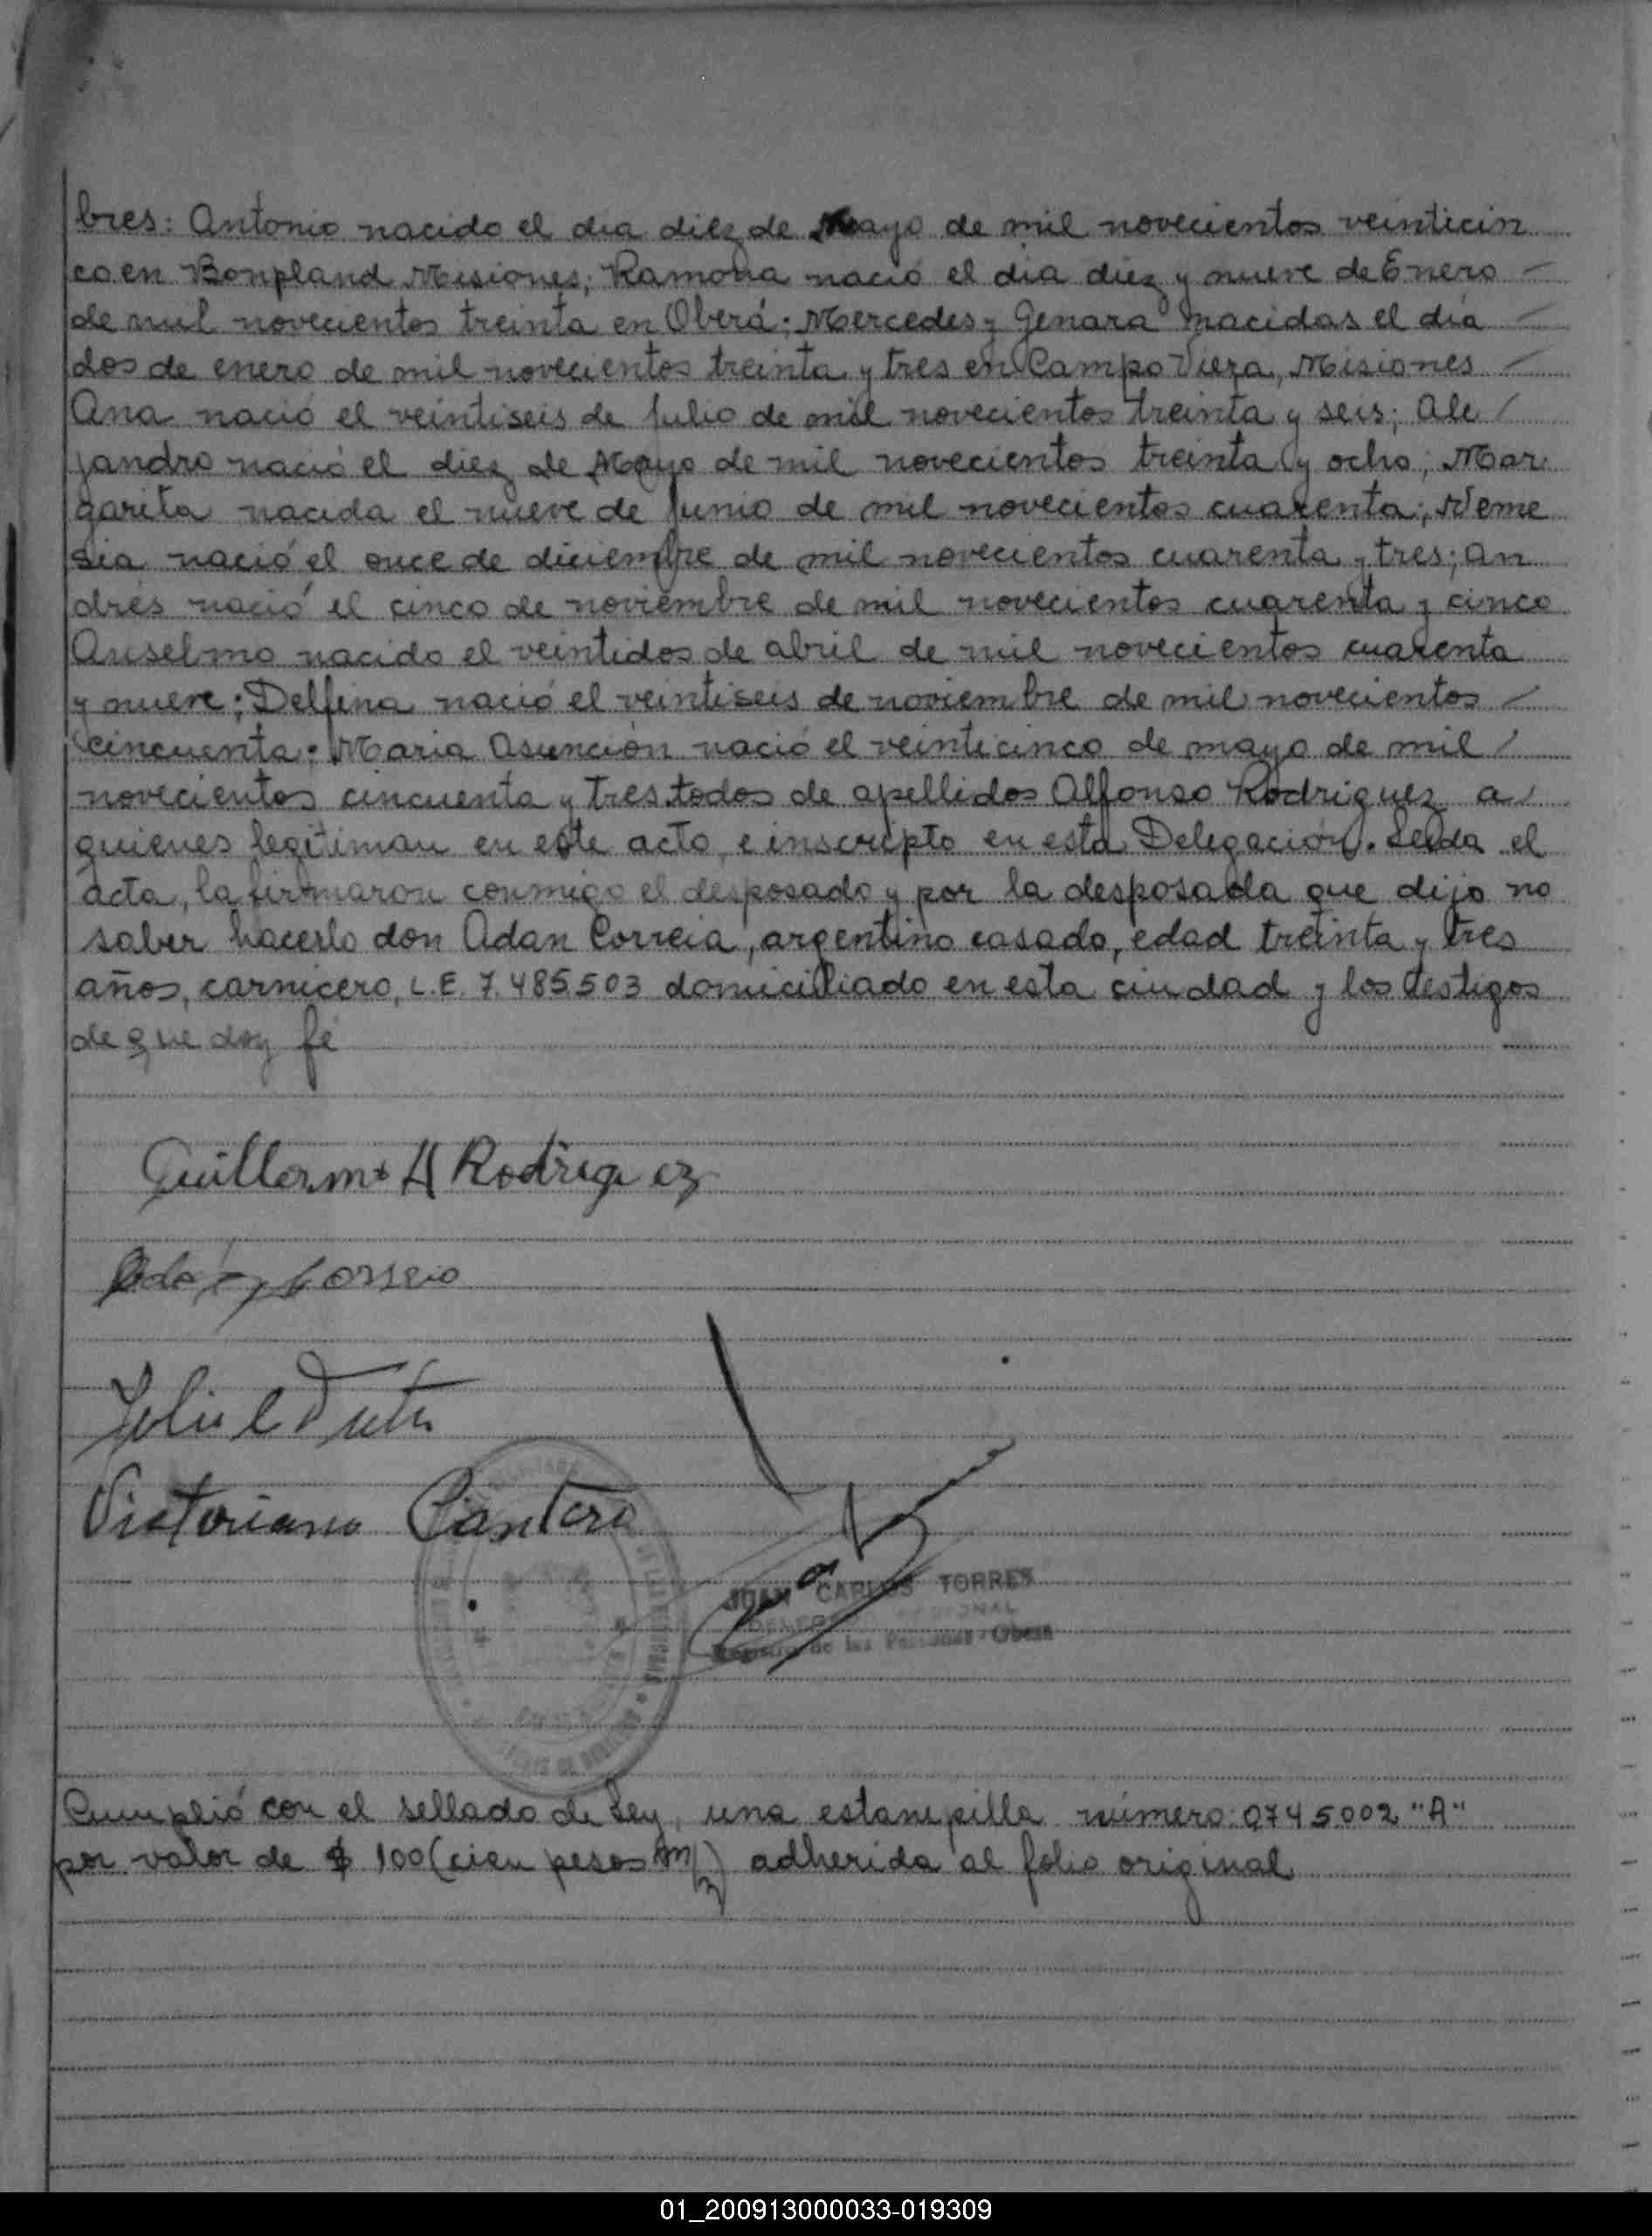 bres: Antonio nacido el dia diez de Mayo de mil novecientos veinticin
co en Bonpland Misiones; Ramona nació el dia diez y nueve de Enero —
de mil novecientos treinta en Oberá; Mercedes y Genara nacidas el día —
dos de enero de mil novecientos treinta y tres en Campo Viera, Misiones —
Ana nació el veintiseis de Julio de mil novecientos treinta y seis; Ale /
jandro nació el diez de Mayo de mil novecientos treinta y ocho; Mar
garita nacida el nueve de Junio de mil novecientos cuarenta; Neme
sia nació el once de diciembre de mil novecientos cuarenta y tres; An
drés nació el cinco de noviembre de mil novecientos cuarenta y cinco
Anselmo nacido el veintidos de abril de mil novecientos cuarenta
y nueve; Delfina nació el veintiseis de noviembre de mil novecientos /
cincuenta; Maria Asunción nació el veinticinco de mayo de mil /
novecientos cincuenta y tres todos de apellidos Alfonso Rodriguez a /
quienes legitiman en este acto e inscripto en esta Delegación. Leida el
acta, la firmaron conmigo el desposado y por la desposada que dijo no
saber hacerlo don Adan Correia, argentino casado, edad treinta y tres
años, carnicero, L.E. 7.485.503 domiciliado en esta ciudad y los testigos
de que doy fé
Guillermo A Rodriguez
Adán Correia
Victoriano Cantero
JUAN CARLOS TORRES
DELEGADO REGIONAL
Registro de las Personas - Oberá
Cumplió con el sellado de Ley, una estampilla número: 0745002 "A"
por valor de $ 100 (cien pesos m/n) adherida al folio original
01_200913000033-019309